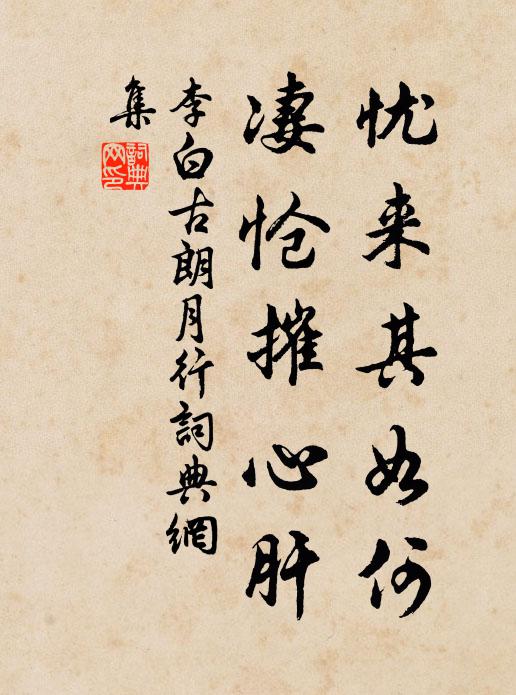 忧来其如何
凄怆摧心肝
李白古朗月行詞典網
集
詞典
网印